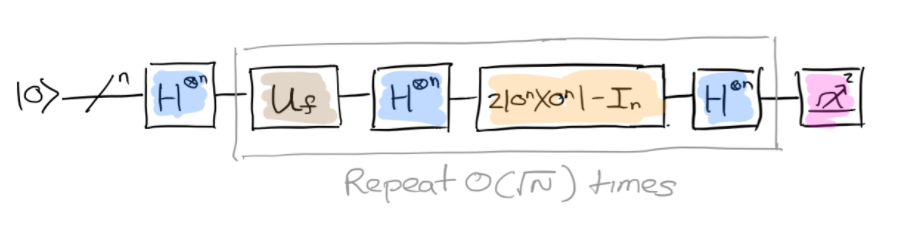 |0⟩ n H⊗n U_f H⊗n 2|0ⁿ⟩⟨0ⁿ| - I_n H⊗n z
Repeat O(√N) times